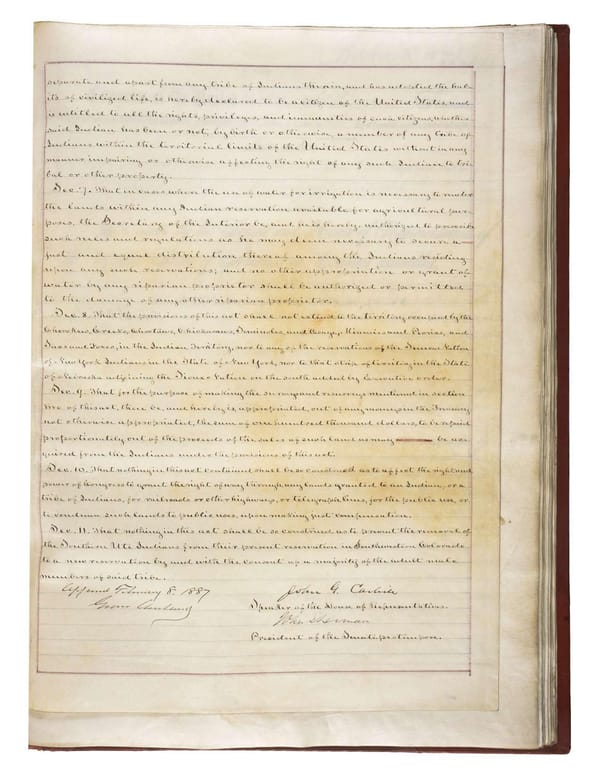 separate and apart from any tribe of Indians therein, and has adopted the hab-
its of civilized life, is hereby declared to be a citizen of the United States, and
is entitled to all the rights, privileges, and immunities of such citizens, whether
said Indian has been or not, by birth or otherwise, a member of any tribe of
Indians within the territorial limits of the United States without in any
manner impairing or otherwise affecting the right of any such Indian to tri-
bal or other property.
Sec. 7. That in cases where the use of water for irrigation is necessary to render
the lands within any Indian reservation available for agricultural pur-
poses, the Secretary of the Interior be, and he is hereby, authorized to prescribe
such rules and regulations as he may deem necessary to secure a
just and equal distribution thereof among the Indians residing
upon any such reservations; and no other appropriation or grant of
water by any riparian proprietor shall be authorized or permitted
to the damage of any other riparian proprietor.
Sec. 8. That the provisions of this act shall not extend to the territory occupied by the
Cherokees, Creeks, Choctaws, Chickasaws, Seminoles, and Osage, Miamies and Peorias, and
Sacs and Foxes, in the Indian Territory, nor to any of the reservations of the Seneca Nation
of New York Indians in the State of New York, nor to that strip of territory in the State
of Nebraska adjoining the Sioux Nation on the south added by executive order.
Sec. 9. That for the purpose of making the surveys and resurveys mentioned in section
two of this act, there be, and hereby is, appropriated, out of any moneys in the Treasury
not otherwise appropriated, the sum of one hundred thousand dollars, to be repaid
proportionately out of the proceeds of the sales of such land as may be ac-
quired from the Indians under the provisions of this act.
Sec. 10. That nothing in this act contained shall be so construed as to affect the right and
power of Congress to grant the right of way through any lands granted to an Indian, or a
tribe of Indians, for railroads or other highways, or telegraph lines, for the public use, or
to condemn such lands to public uses, upon making just compensation.
Sec. 11. That nothing in this act shall be so construed as to prevent the removal of
the Southern Ute Indians from their present reservation in Southwestern Colorado
to a new reservation by and with the consent of a majority of the adult male
members of said tribe.
Approved February 8. 1887
Grover Cleveland
John G. Carlisle
Speaker of the House of Representatives.
John Sherman
President of the Senate pro tempore.